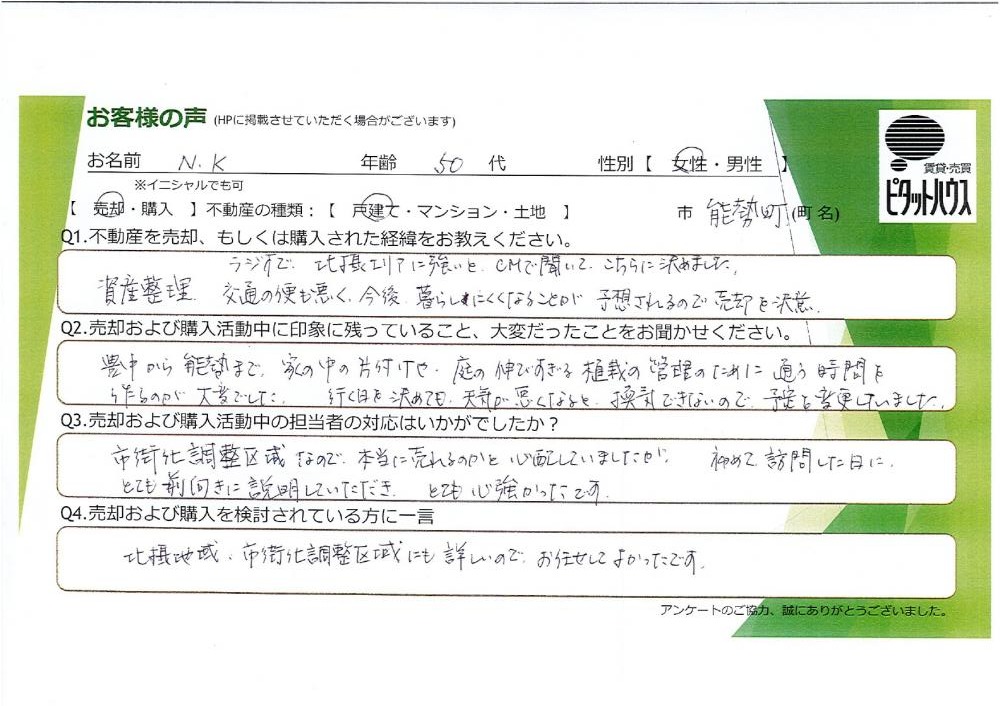 お客様の声 (HPに掲載させていただく場合がございます)
お名前 N.K 年齢 50 代 性別【 女性・男性 】
※イニシャルでも可
【 売却・購入 】不動産の種類：【 戸建て・マンション・土地 】 市 能勢町 (町名)
賃貸・売買
ピタットハウス
Q1.不動産を売却、もしくは購入された経緯をお教えください。
ラジオで、北摂エリアに強いと、CMで聞いて、こちらに決めました。
資産整理、交通の便も悪く、今後、暮らしにくくなることが予想されるので売却を決意。
Q2.売却および購入活動中に印象に残っていること、大変だったことをお聞かせください。
豊中から能勢まで、家の中の片付けや、庭の伸びすぎる植栽の管理のために通う時間を
作るのが大変でした。 行く日を決めても、天気が悪くなると、換気できないので、予定を変更していました。
Q3.売却および購入活動中の担当者の対応はいかがでしたか？
市街化調整区域なので、本当に売れるのかと心配していましたが、初めて訪問した日に、
とても前向きに説明していただき、とても心強かったです。
Q4.売却および購入を検討されている方に一言
北摂地域、市街化調整区域にも詳しいので、お任せしてよかったです。
アンケートのご協力、誠にありがとうございました。